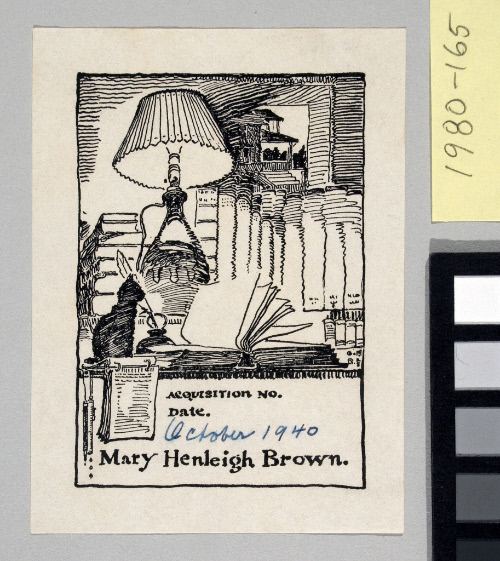 1980-165
ACQUISITION NO.
DATE.
October 1940
Mary Henleigh Brown.